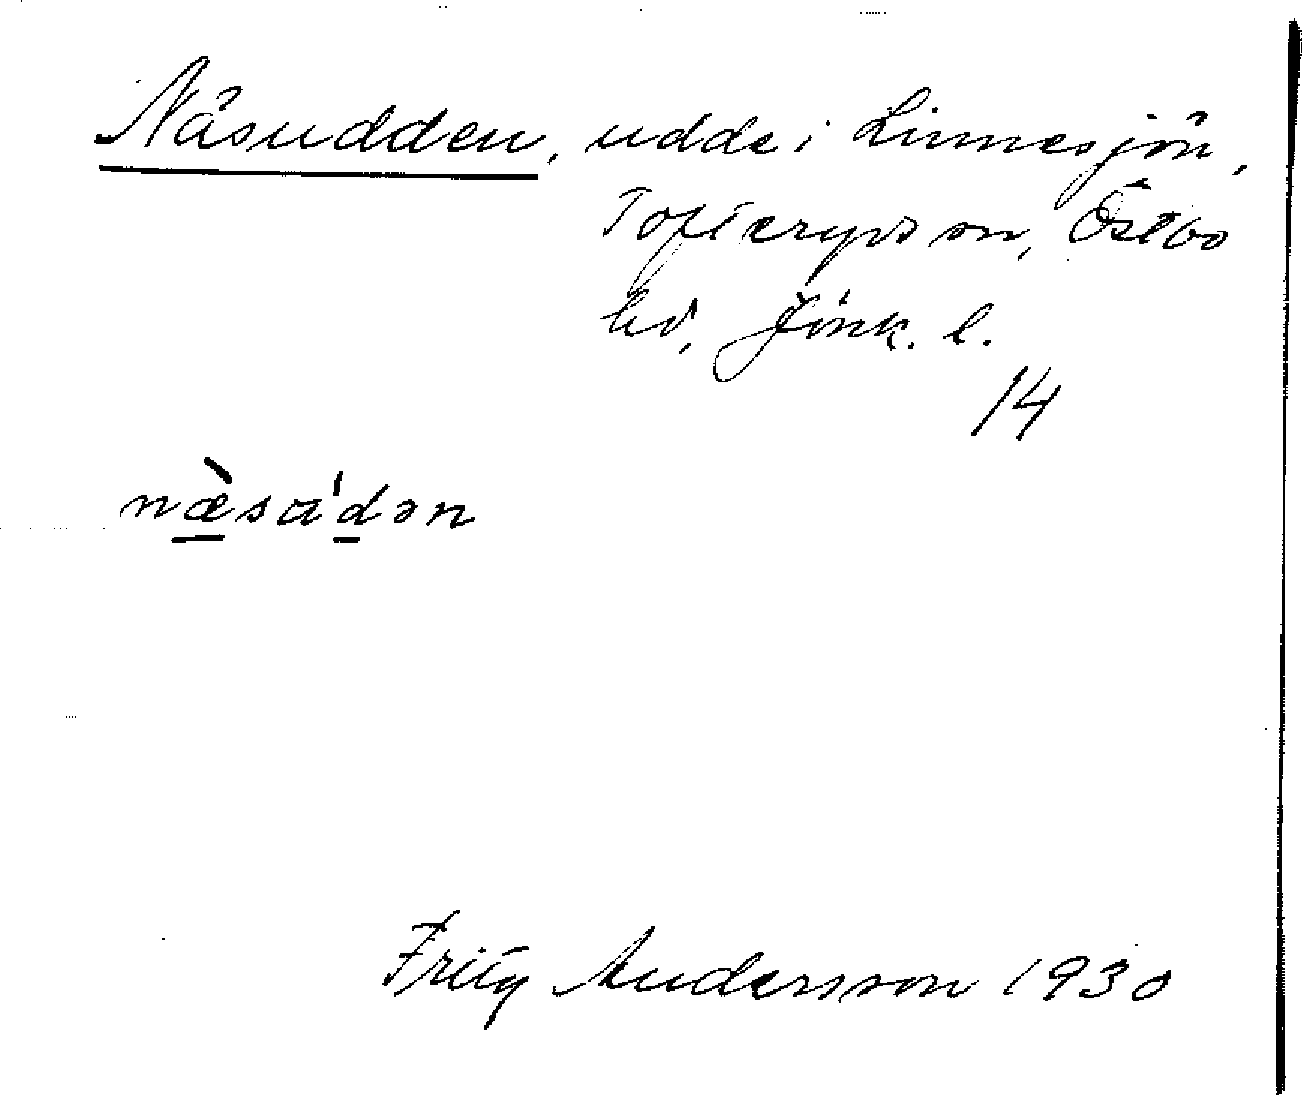 Näsudden, udde i Linnesjön,
Tofteryds sn, Östbo
hd, Jönk. l.
14
næ̀sa'dən
Fritz Andersson 1930